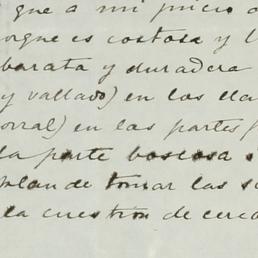 que a mi juicio
orque es costosa y
barata y duradera
y vallado) en los lla
orral) en las partes
la parte boscosa
plan de tomar las
la cuestión de cerca